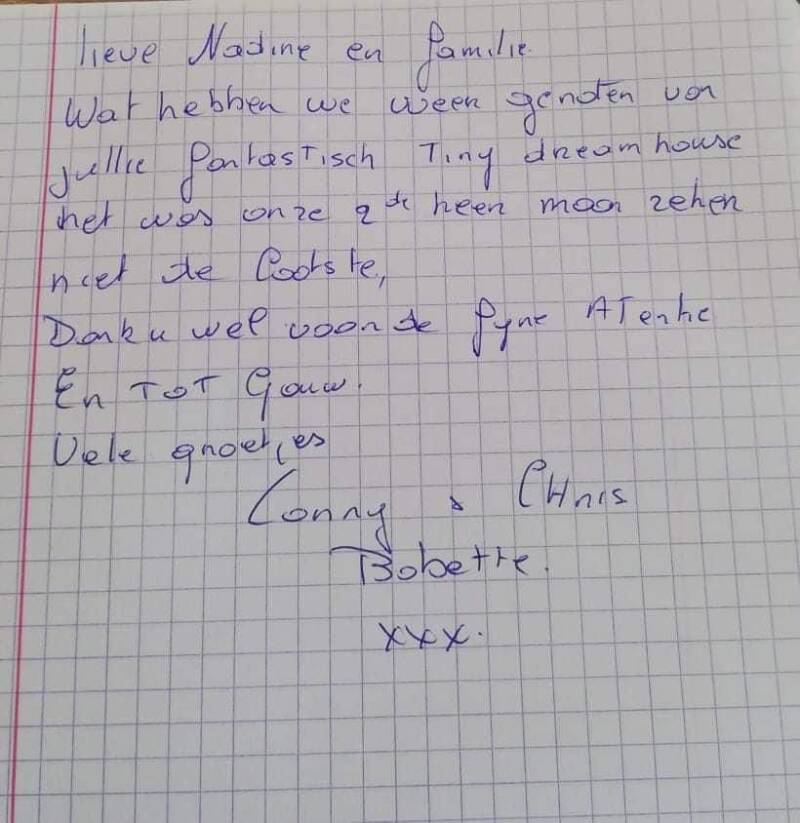 lieve Nadine en familie.
Wat hebben we weer genoten van
jullie fantastisch Tiny dreamhouse
het was onze 2de keer maar zeker
niet de laatste,
Dank u wel voor de fyne ATentie
En TOT Gauw.
Vele groetjes
Conny & CHris
Bobette.
xxx.